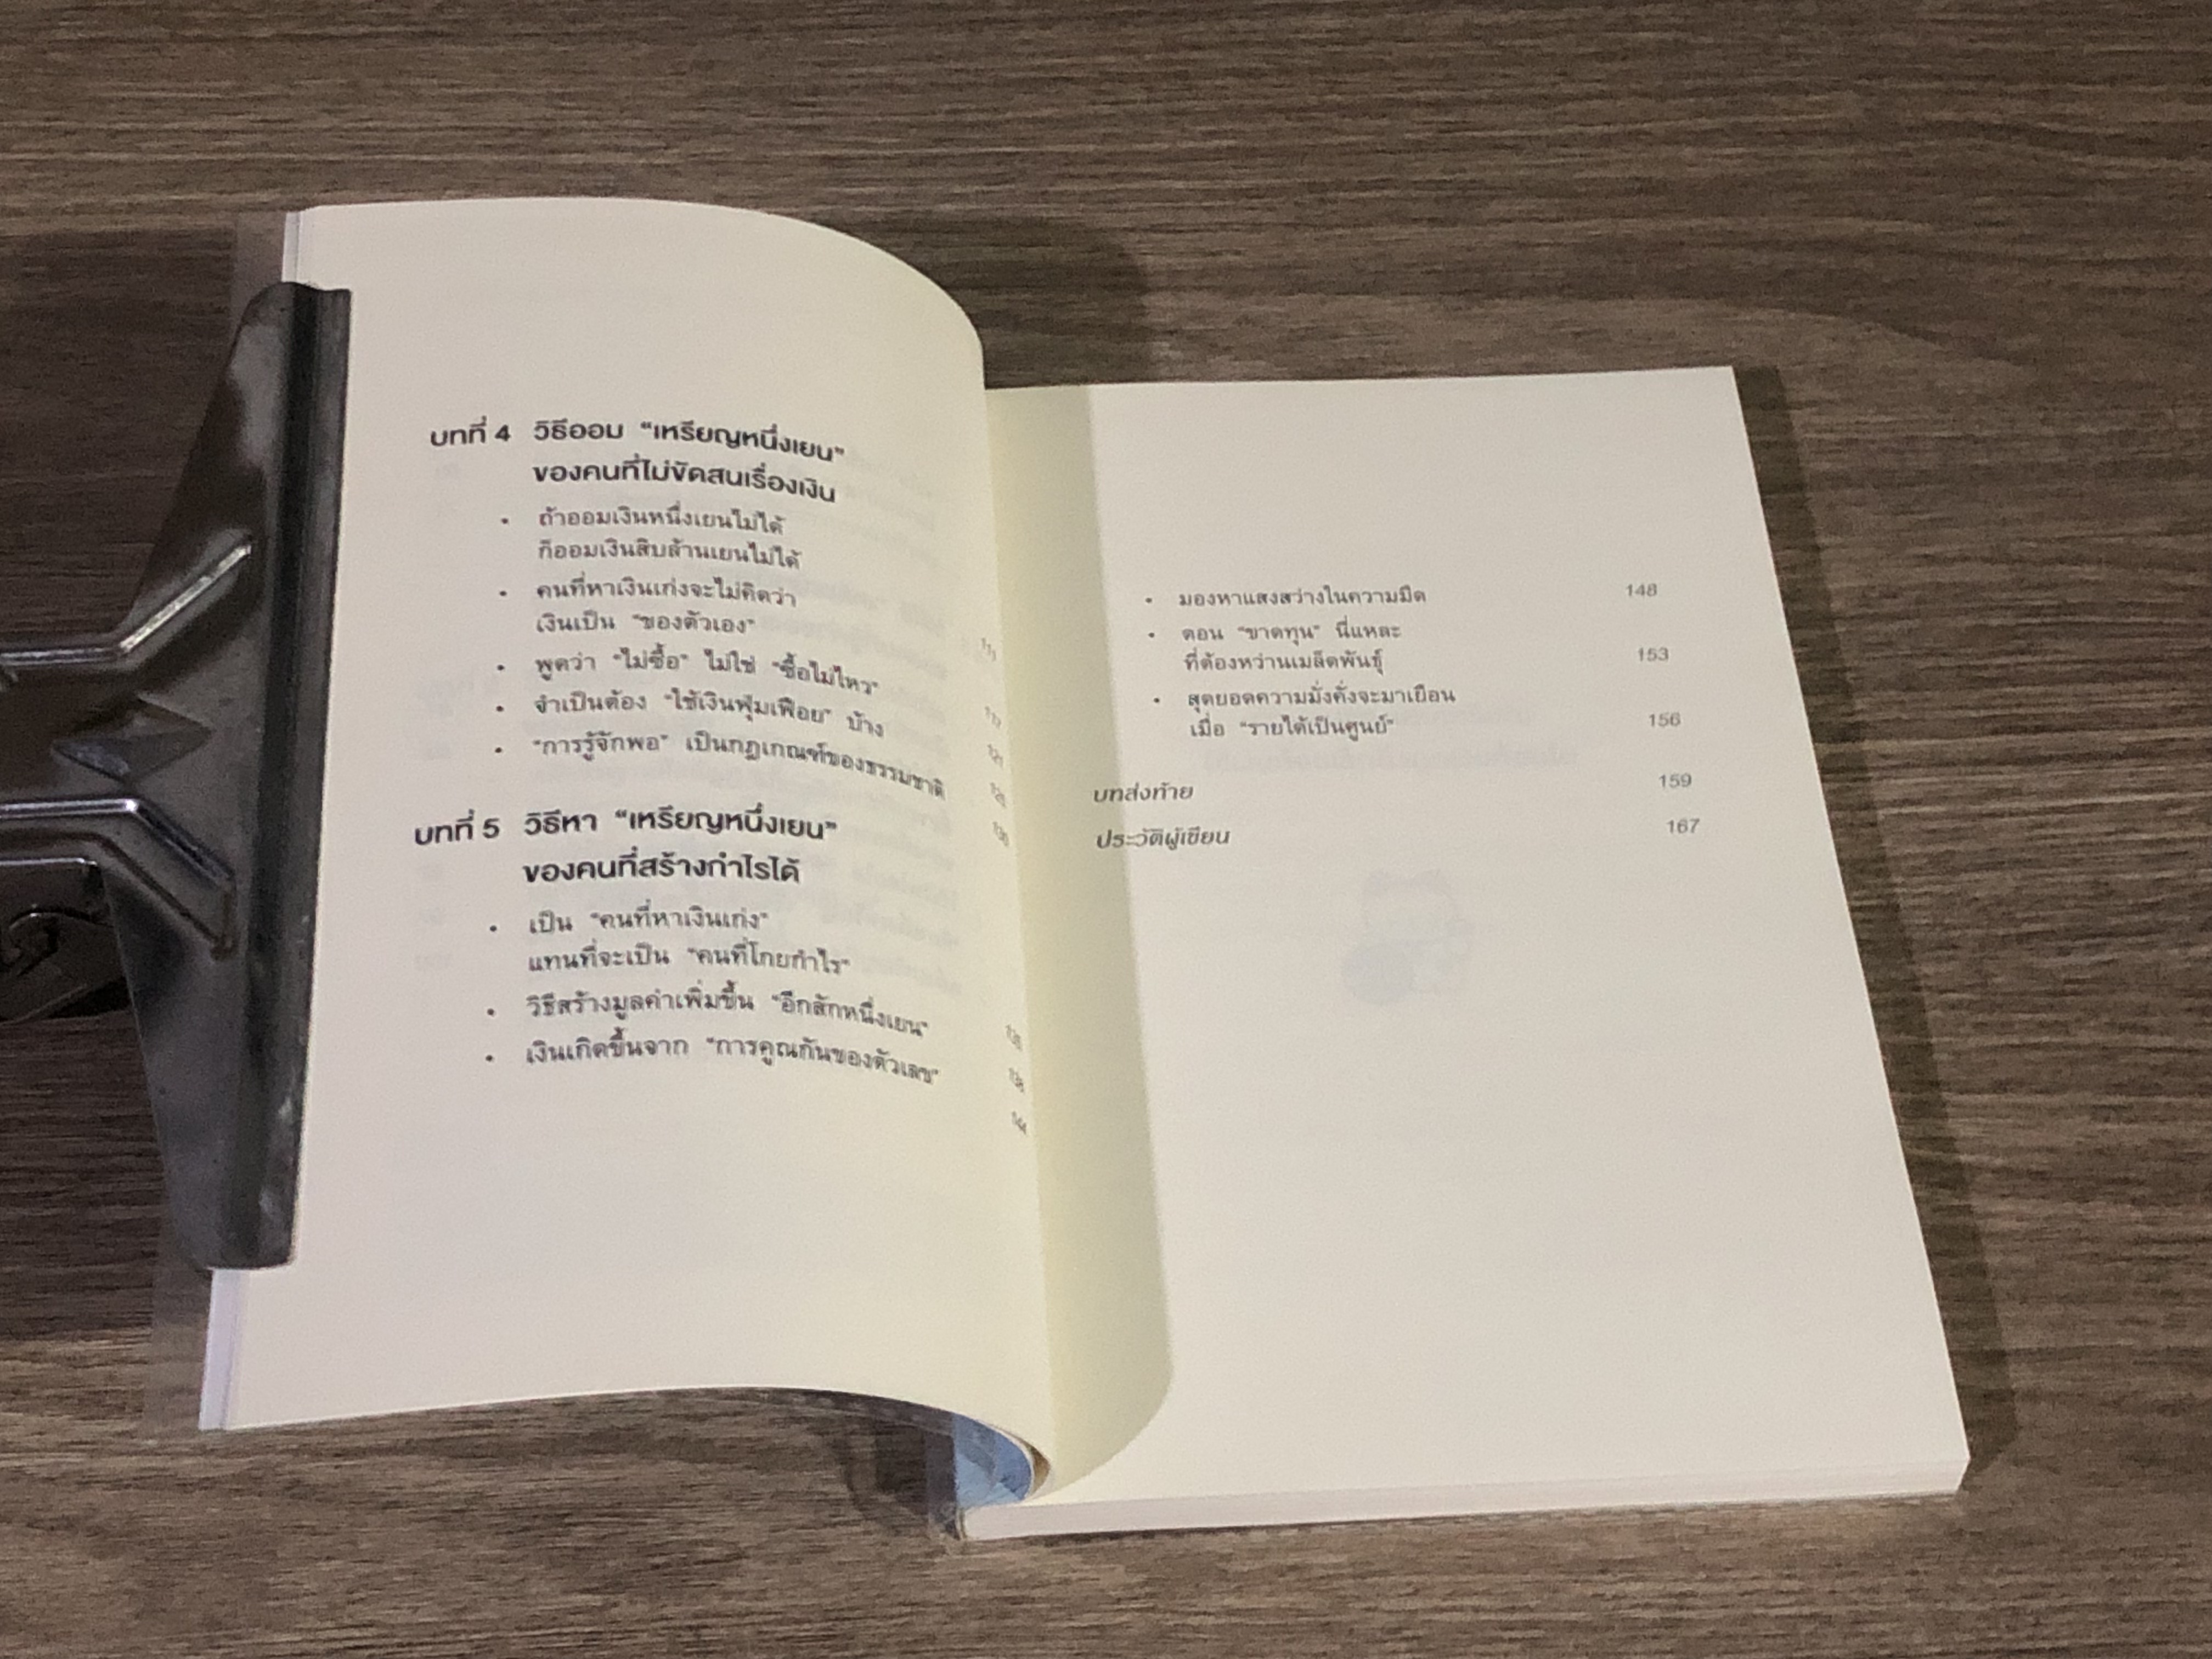 บทที่ 4 วิธีออม “เหรียญหนึ่งเยน”
ของคนที่ไม่ขัดสนเรื่องเงิน
• ถ้าออมเงินหนึ่งเยนไม่ได้
ก็ออมเงินสิบล้านเยนไม่ได้ 111
• คนที่หาเงินเก่งจะไม่คิดว่า
เงินเป็น “ของตัวเอง” 117
• พูดว่า “ไม่ซื้อ” ไม่ใช่ “ซื้อไม่ไหว” 121
• จำเป็นต้อง “ใช้เงินฟุ่มเฟือย” บ้าง
• “การรู้จักพอ” เป็นกฎเกณฑ์ของธรรมชาติ 130
บทที่ 5 วิธีหา “เหรียญหนึ่งเยน”
ของคนที่สร้างกำไรได้
• เป็น “คนที่หาเงินเก่ง”
แทนที่จะเป็น “คนที่โกยกำไร”
• วิธีสร้างมูลค่าเพิ่มขึ้น “อีกสักหนึ่งเยน”
• เงินเกิดขึ้นจาก “การคูณกันของตัวเลข” 144
• มองหาแสงสว่างในความมืด 148
• ตอน “ขาดทุน” นี่แหละ
ที่ต้องหว่านเมล็ดพันธุ์ 153
• สุดยอดความมั่งคั่งจะมาเยือน
เมื่อ “รายได้เป็นศูนย์” 156
บทส่งท้าย 159
ประวัติผู้เขียน 167